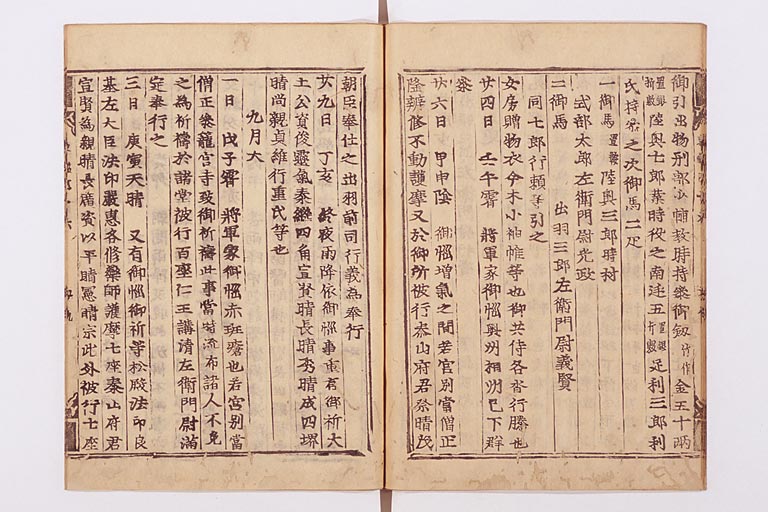 御引出物刑部少輔教時持参御釼 竹作 金五十両
置銀 折敷 陸奥七郎業時役之南廷五 置銀 折敷 足利三郎利
氏持参之次御馬二疋
一御馬 置鞍 陸奥三郎時村
式部太郎左衛門尉光政
二御馬 出羽三郎左衛門尉義賢
同七郎行頼等引之
女房贈物衣今木小袖帷等也御共侍各沓行騰也
廿四日 壬午霽 将軍家御悩奥州相州已下群
参
廿六日 甲申陰 御悩増気之間若宮別当僧正
隆弁修不動護摩又於御所被行泰山府君祭晴茂
朝臣奉仕之出羽前司行義為奉行
廿九日 丁亥 終夜雨降依御悩事重有御祈大
土公資俊霊気泰継四角宣賢晴長晴秀晴成四堺
晴尚親貞維行重氏等也
九月大
一日 戊子霽 将軍家御悩赤班瘡也若宮別当
僧正参籠宮寺致御祈祷此事当時流布諸人不免
之為祈祷於諸堂被行百座仁王講清左衛門尉満
定奉行之
三日 庚寅天晴 又有御悩御祈等松殿法印良
基左大臣法印厳恵各修薬師護摩七座泰山府君
宣賢為親晴長広資以平晴憲晴宗此外被行七座